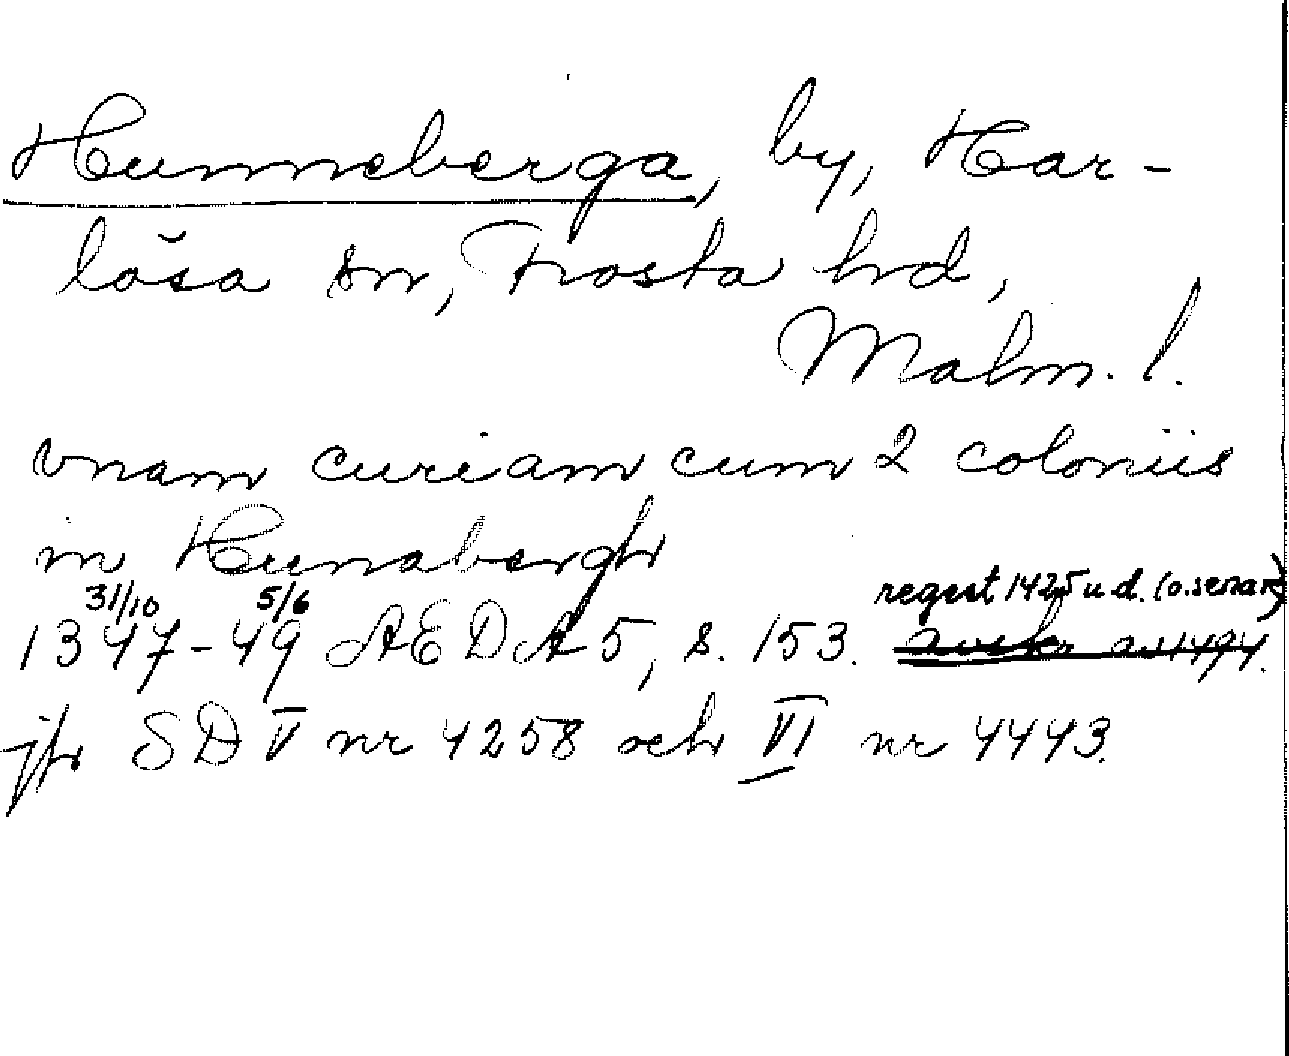 Hunneberga, by, Har-
lösa sn, Frosta hd,
Malm. l.
vnam curiam cum 2 coloniis
in Hunabergh
31/10 5/6 regest 1425 u.d. (o. senare)
1347-49 ÆDA 5, s. 153. avskr av 1494.
jfr SD V nr 4258 och VI nr 4443.